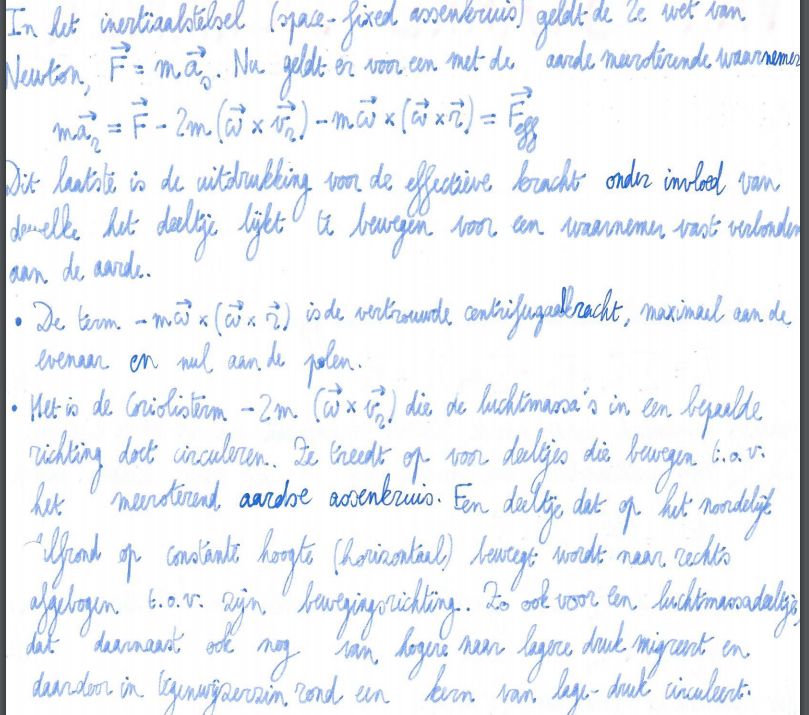 In het inertiaalstelsel (space-fixed assenkruis) geldt de 2e wet van
Newton, F⃗ = m a⃗ₛ. Nu geldt er voor een met de aarde meeroterende waarnemer
m a⃗ᵣ = F⃗ - 2m (ω⃗ × v⃗ᵣ) - m ω⃗ × (ω⃗ × r⃗) = F⃗eff
Dit laatste is de uitdrukking voor de effectieve kracht onder invloed van
dewelke het deeltje lijkt te bewegen voor een waarnemer vast verbonden
aan de aarde.
• De term - m ω⃗ × (ω⃗ × r⃗) is de vertrouwde centrifugaalkracht, maximaal aan de
evenaar en nul aan de polen.
• Het is de Coriolisterm - 2m (ω⃗ × v⃗ᵣ) die de luchtmassa's in een bepaalde
richting doet circuleren. Ze treedt op voor deeltjes die bewegen t.o.v.
het meeroterend aardse assenkruis. Een deeltje dat op het noordelijk
halfrond op constante hoogte (horizontaal) beweegt wordt naar rechts
afgebogen t.o.v. zijn bewegingsrichting. Zo ook voor een luchtmassadeeltje,
dat daarnaast ook nog van hogere naar lagere druk migreert en
daardoor in tegenwijzerzin rond een kern van lage-druk circuleert.